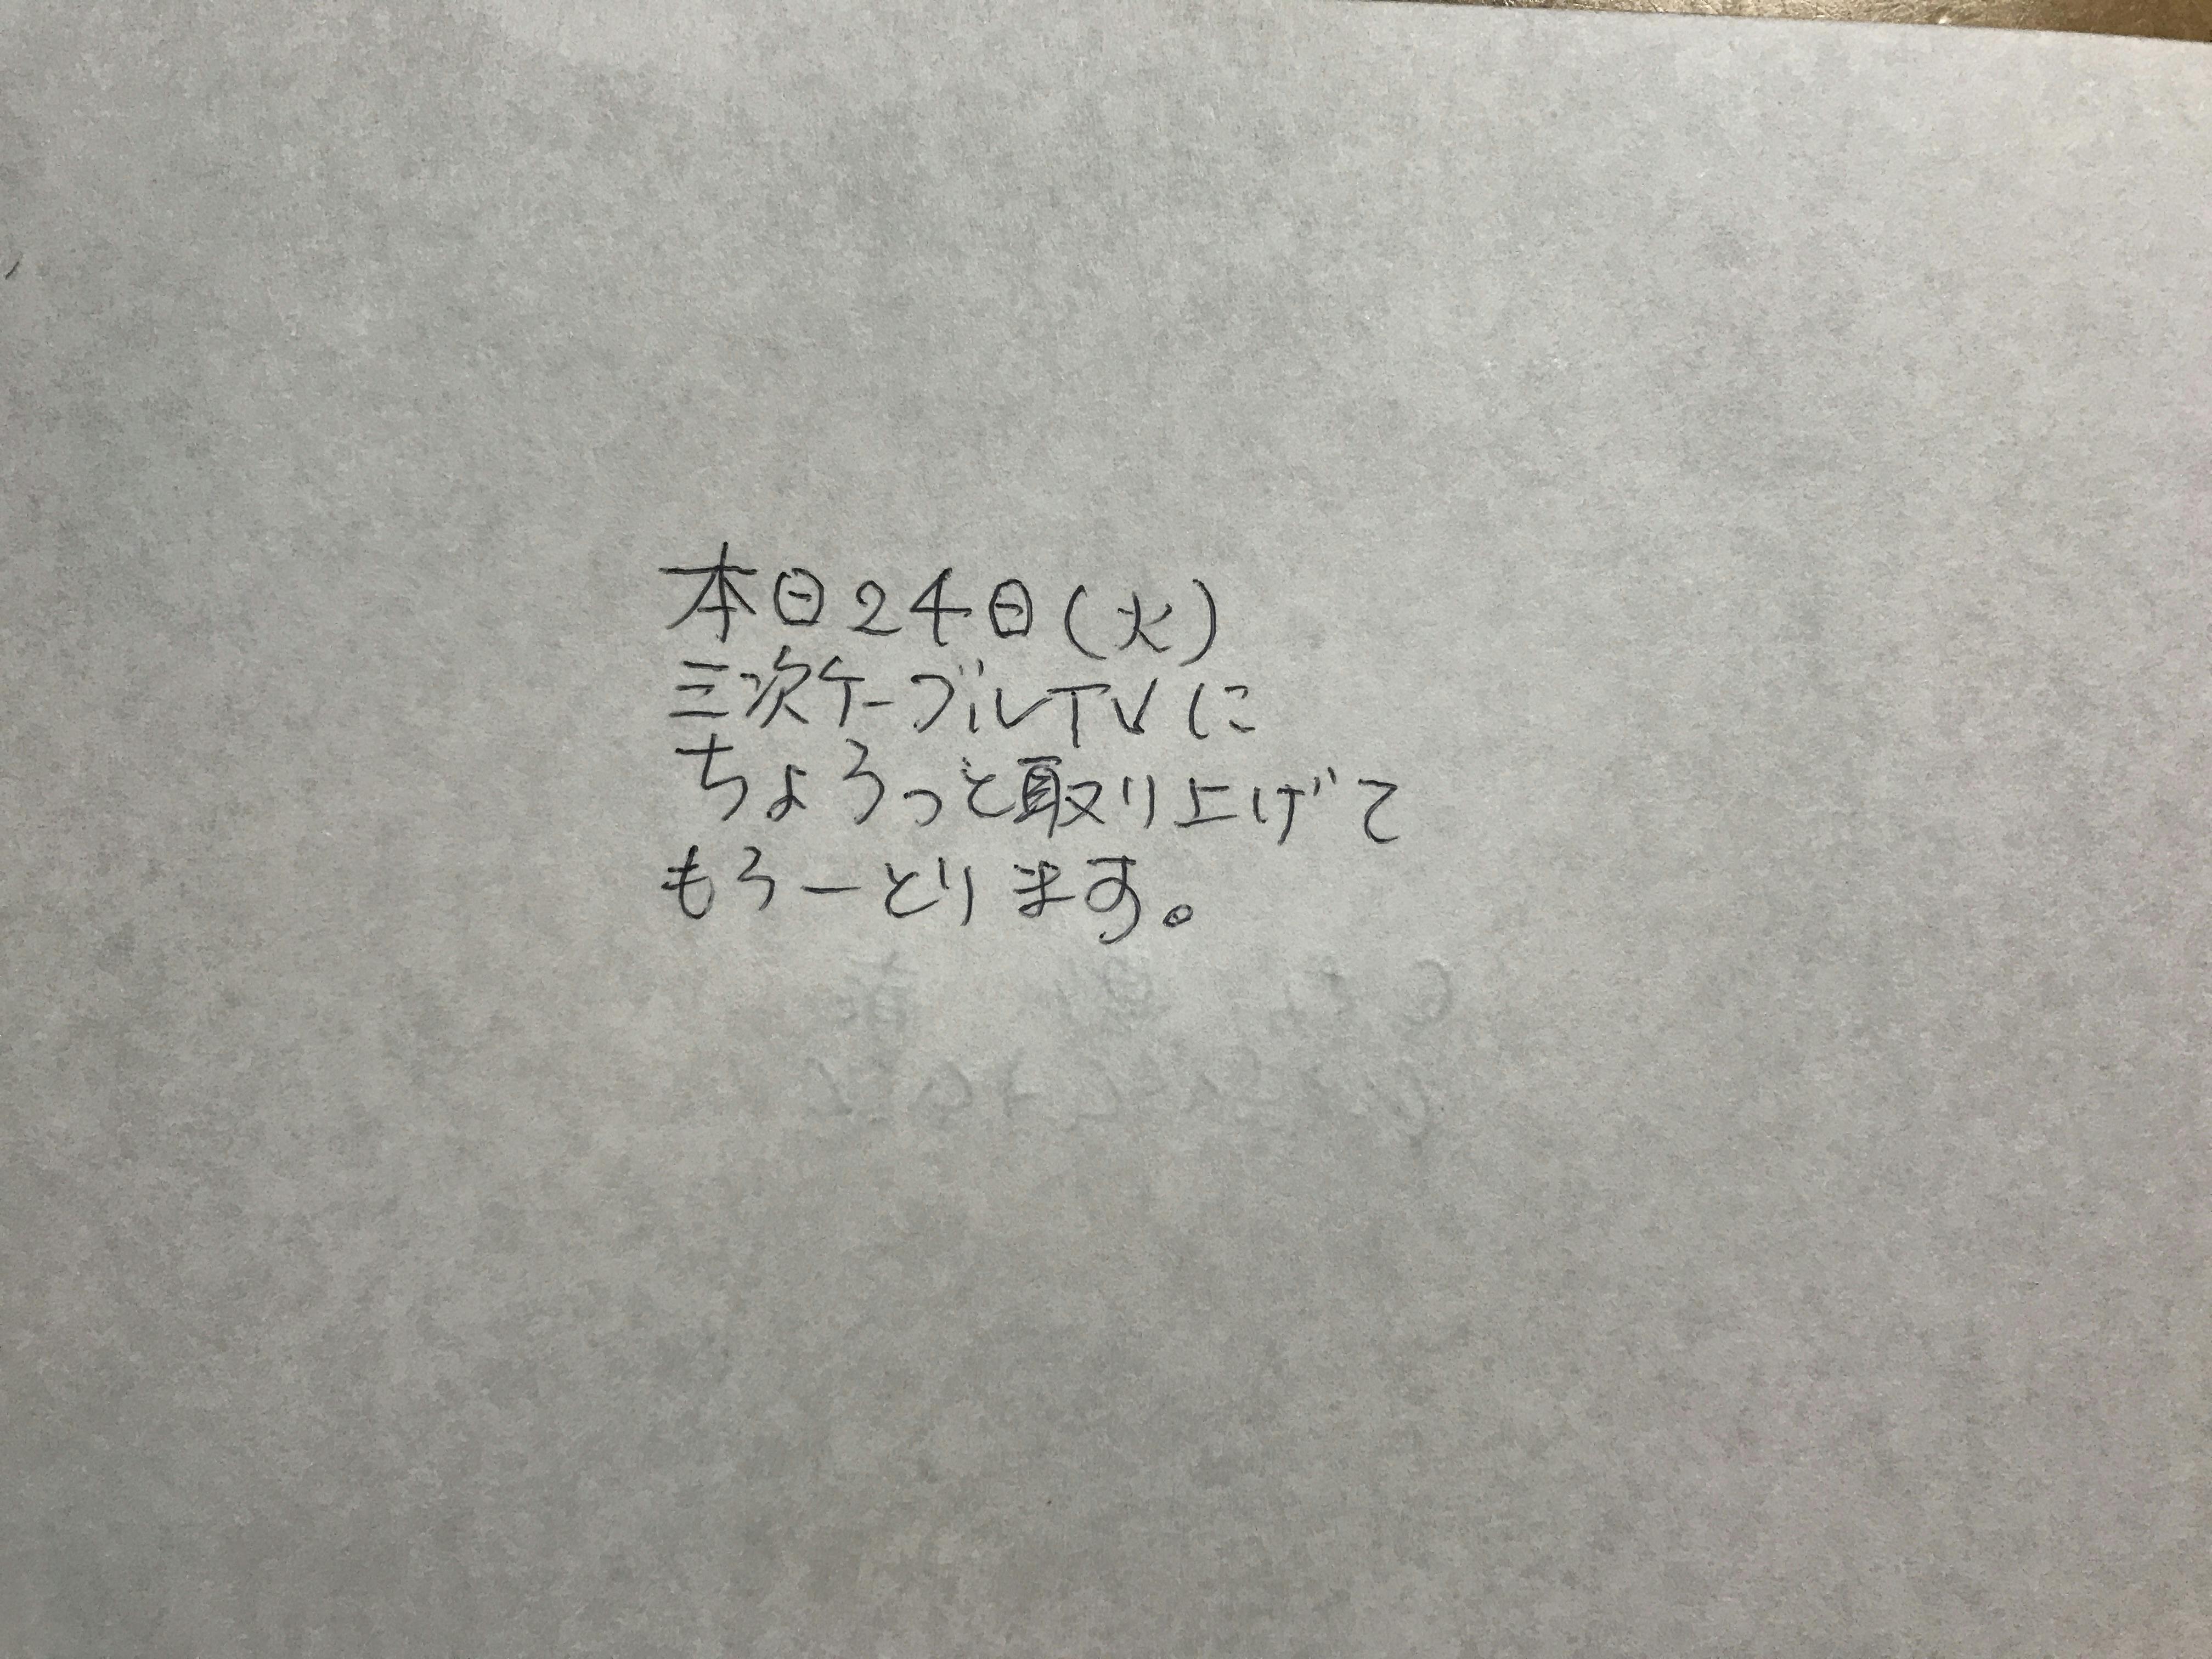 本日24日(火)
三次ケーブルTVに
ちょろっと取り上げて
もろーとります。